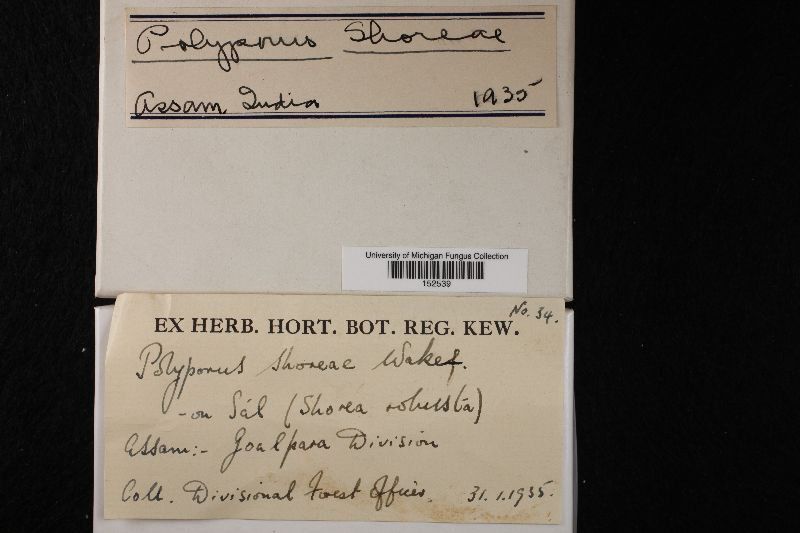 Polyporus Shoreae
Assam India 1935
University of Michigan Fungus Collection
152539
No. 34.
EX HERB. HORT. BOT. REG. KEW.
Polyporus shoreae Wakef.
- on Sál (Shorea robusta)
Assam:- Goalpara Division
Coll. Divisional Forest Officer. 31.1.1935.